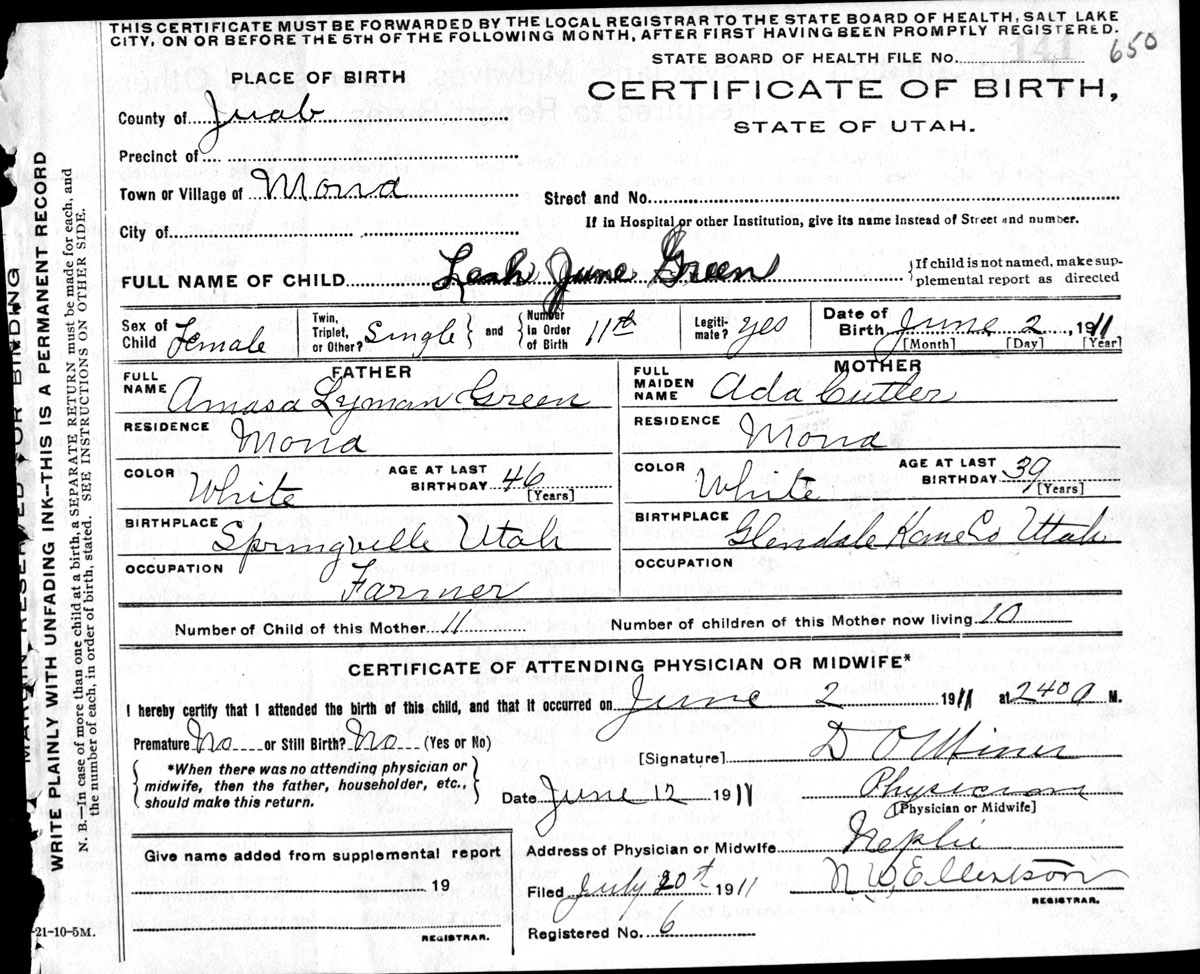 THIS CERTIFICATE MUST BE FORWARDED BY THE LOCAL REGISTRAR TO THE STATE BOARD OF HEALTH, SALT LAKE
CITY, ON OR BEFORE THE 5TH OF THE FOLLOWING MONTH, AFTER FIRST HAVING BEEN PROMPTLY REGISTERED.
650
STATE BOARD OF HEALTH FILE No.
PLACE OF BIRTH
CERTIFICATE OF BIRTH,
STATE OF UTAH.
County of Juab
Precinct of
Town or Village of Mona
Street and No.
If in Hospital or other Institution, give its name instead of Street and number.
City of
FULL NAME OF CHILD Leah June Green
{If child is not named, make sup-
plemental report as directed
Sex of Child Female
Twin, Triplet, or Other? Single } and { Number in Order of Birth 11th
Legiti-mate? yes
Date of Birth June 2, 1911
[Month] [Day] [Year]
FATHER
FULL NAME Amasa Lyman Green
RESIDENCE Mona
COLOR White
AGE AT LAST BIRTHDAY 46 [Years]
BIRTHPLACE Springville Utah
OCCUPATION Farmer
MOTHER
FULL MAIDEN NAME Ada Cutler
RESIDENCE Mona
COLOR White
AGE AT LAST BIRTHDAY 39 [Years]
BIRTHPLACE Glendale Kane Co Utah
OCCUPATION
Number of Child of this Mother 11
Number of children of this Mother now living 10
CERTIFICATE OF ATTENDING PHYSICIAN OR MIDWIFE*
I hereby certify that I attended the birth of this child, and that it occurred on June 2 1911 at 240 a M.
Premature No or Still Birth? No (Yes or No)
[Signature] D O Miner
{ *When there was no attending physician or
midwife, then the father, householder, etc.,
should make this return. }
Date June 12 1911
Physician
[Physician or Midwife]
Give name added from supplemental report
19
REGISTRAR.
Address of Physician or Midwife Nephi
Filed July 20th 1911
REGISTRAR.
Registered No. 6
-21-10-5M.
MARGIN RESERVED FOR BINDING
WRITE PLAINLY WITH UNFADING INK—THIS IS A PERMANENT RECORD
N. B.—In case of more than one child at a birth, a SEPARATE RETURN must be made for each, and
the number of each, in order of birth, stated. SEE INSTRUCTIONS ON OTHER SIDE.